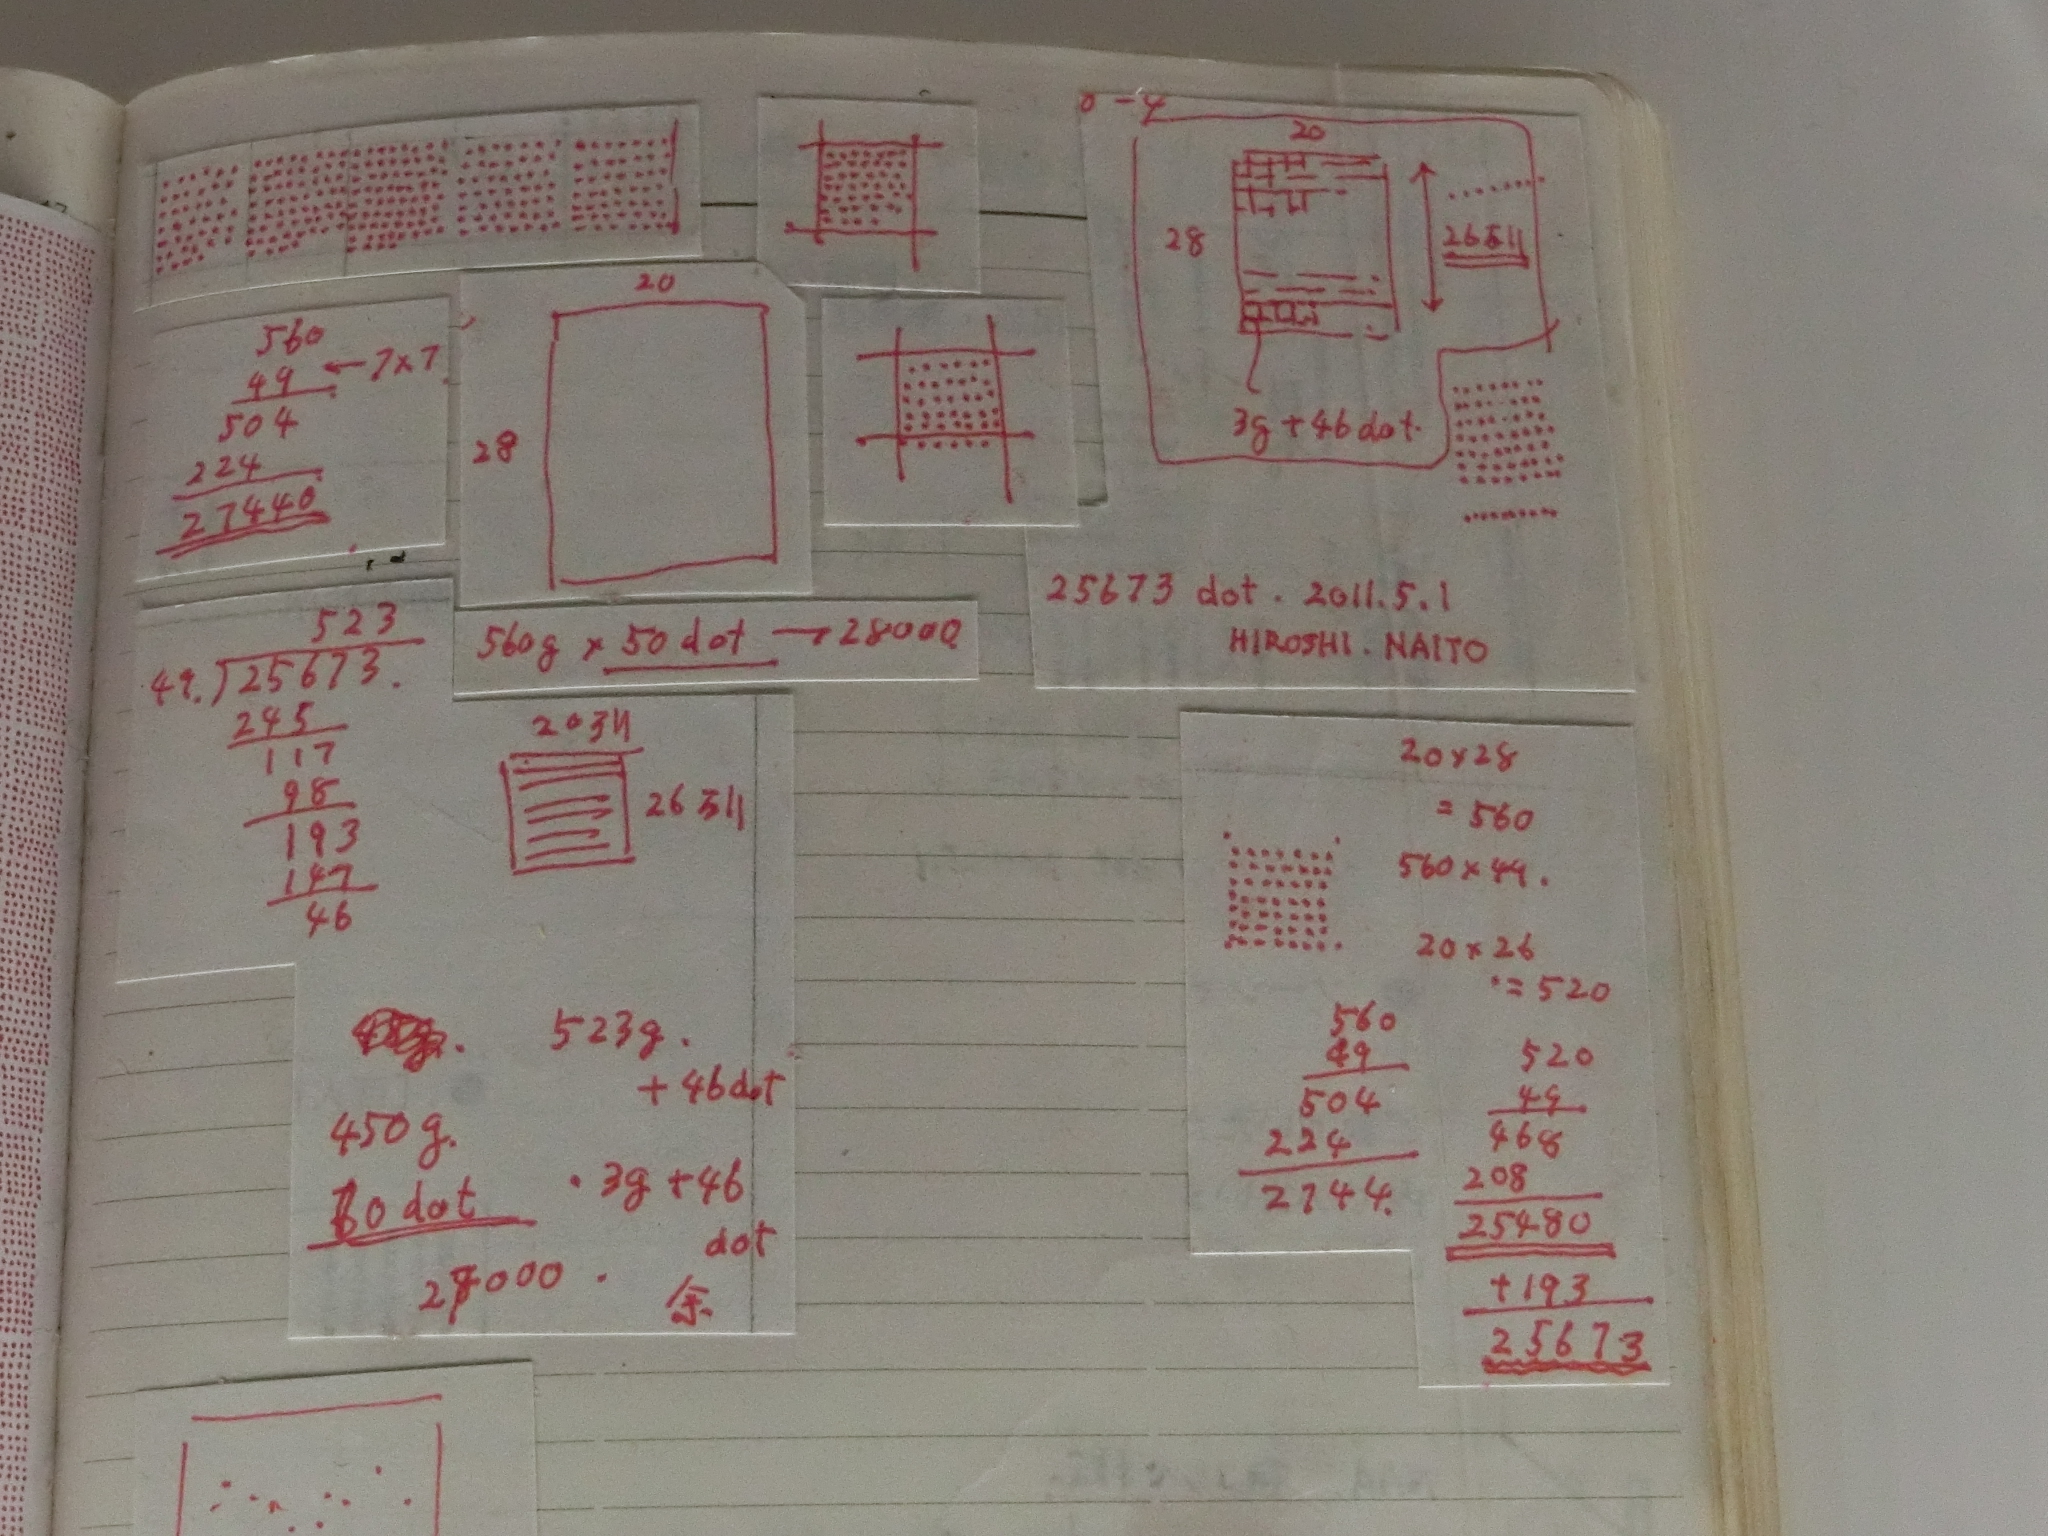 20
28
26列
3g+46dot.
560
49 ← 7×7
504
224
27440
20
28
25673 dot. 2011.5.1
HIROSHI. NAITO
560g × 50 dot → 28000
523
49.)25673.
245
117
98
193
147
46
20列
26列
523g.
+46dot
450g.
60 dot
28000.
・3g+46
dot
余
20×28
=560
560×49.
20×26
=520
560
49
504
224
2744.
520
49
468
208
25480
+193
25673